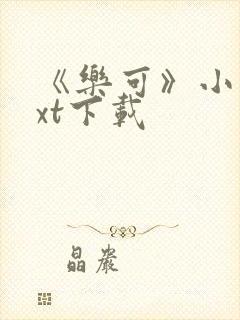 《樂可》小
xt下載
晶嚴